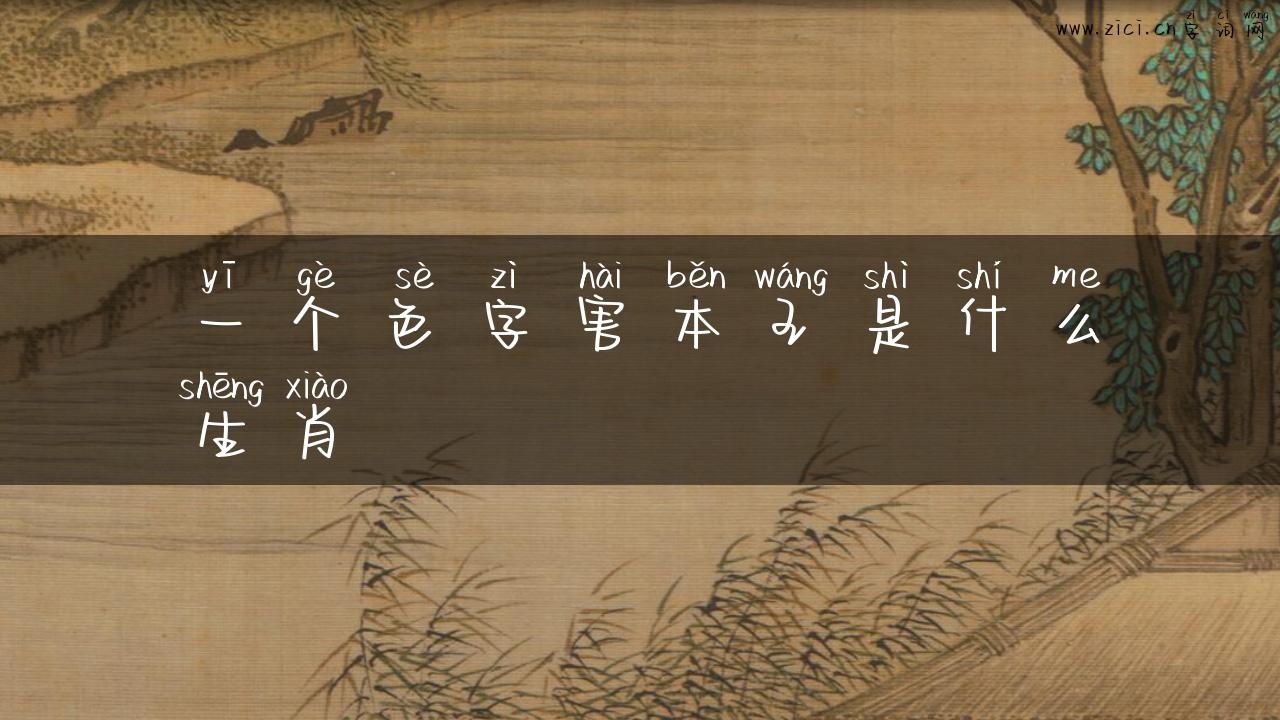 zì cí wǎng
www.zici.cn字词网
yī gè sè zì hài běn wáng shì shí me
一个色字害本王是什么
shēng xiào
生肖